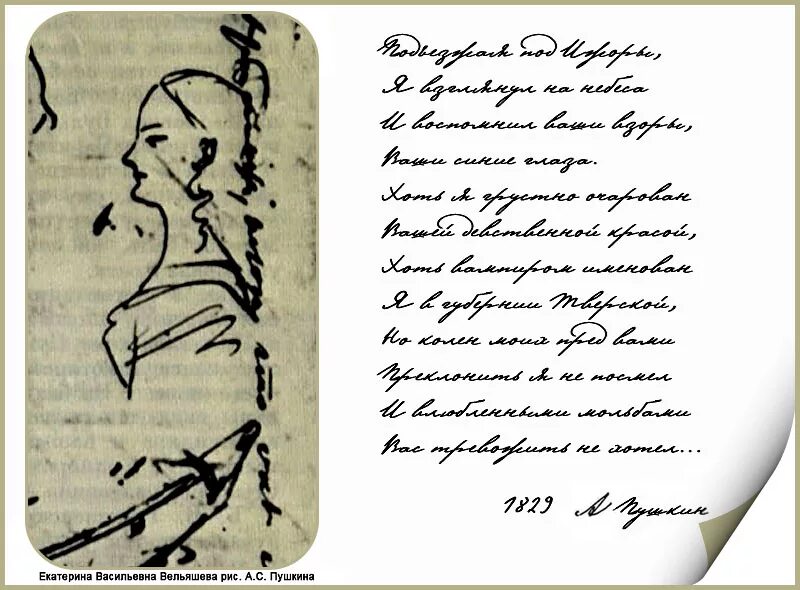 Подъезжая под Ижоры,
Я взглянул на небеса
И воспомнил ваши взоры,
Ваши синие глаза.
Хоть я грустно очарован
Вашей девственной красой,
Хоть вампиром именован
Я в губернии Тверской,
Но колен моих пред вами
Преклонить я не посмел
И влюбленными мольбами
Вас тревожить не хотел...
1829 А Пушкин
Екатерина Васильевна Вельяшева рис. А.С. Пушкина